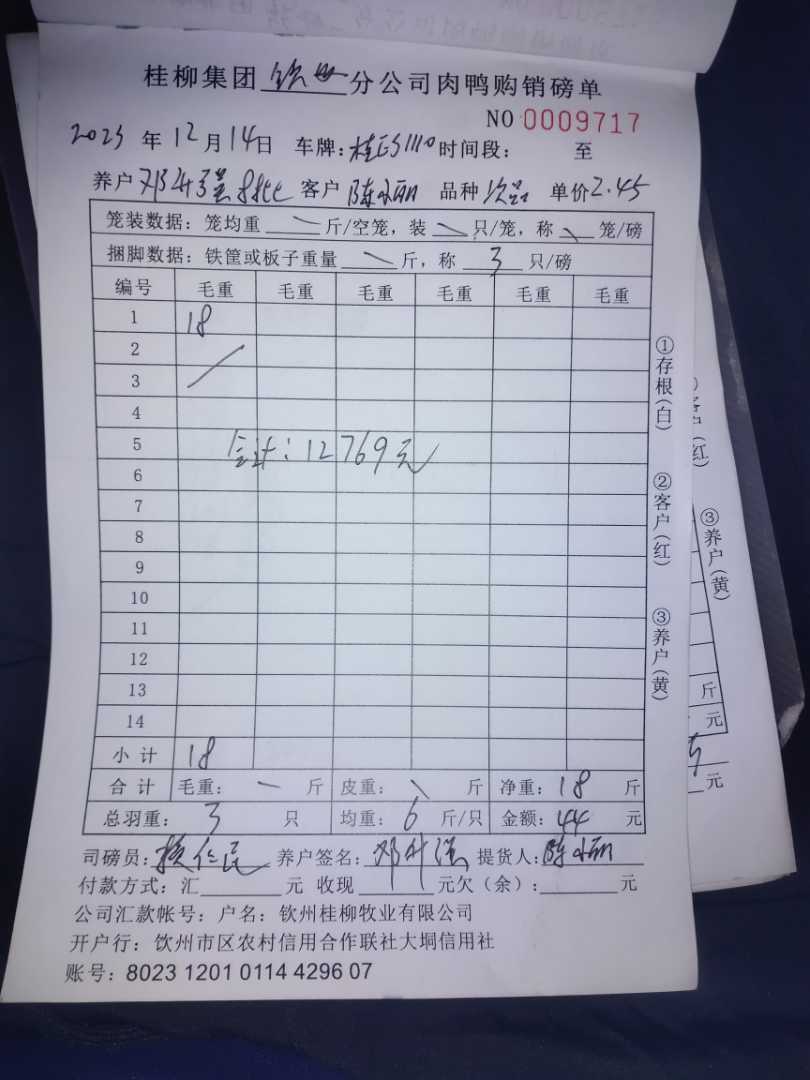 桂柳集团 钦州 分公司肉鸭购销磅单
NO 0009717
2023 年 12 月 14 日 车牌: 时间段: 至
养户 邓升强 客户 陈小丽 品种 次品 单价 2.45
笼装数据: 笼均重 斤/空笼, 装 只/笼, 称 笼/磅
捆脚数据: 铁筐或板子重量 斤, 称 3 只/磅
编号 毛重 毛重 毛重 毛重 毛重 毛重
1 18
2
3
4
5 合计: 12769元
6
7
8
9
10
11
12
13
14
小 计 18
合 计 毛重: 一 斤 皮重: 斤 净重: 18 斤
总羽重: 3 只 均重: 6 斤/只 金额: 44 元
司磅员: 养户签名: 邓升强 提货人: 陈小丽
付款方式: 汇 元 收现 元欠(余): 元
公司汇款帐号: 户名: 钦州桂柳牧业有限公司
开户行: 饮州市区农村信用合作联社大垌信用社
账号: 8023 1201 0114 4296 07
①存根(白)
②客户(红)
③养户(黄)
(红)
③养户(黄)
斤
元
元